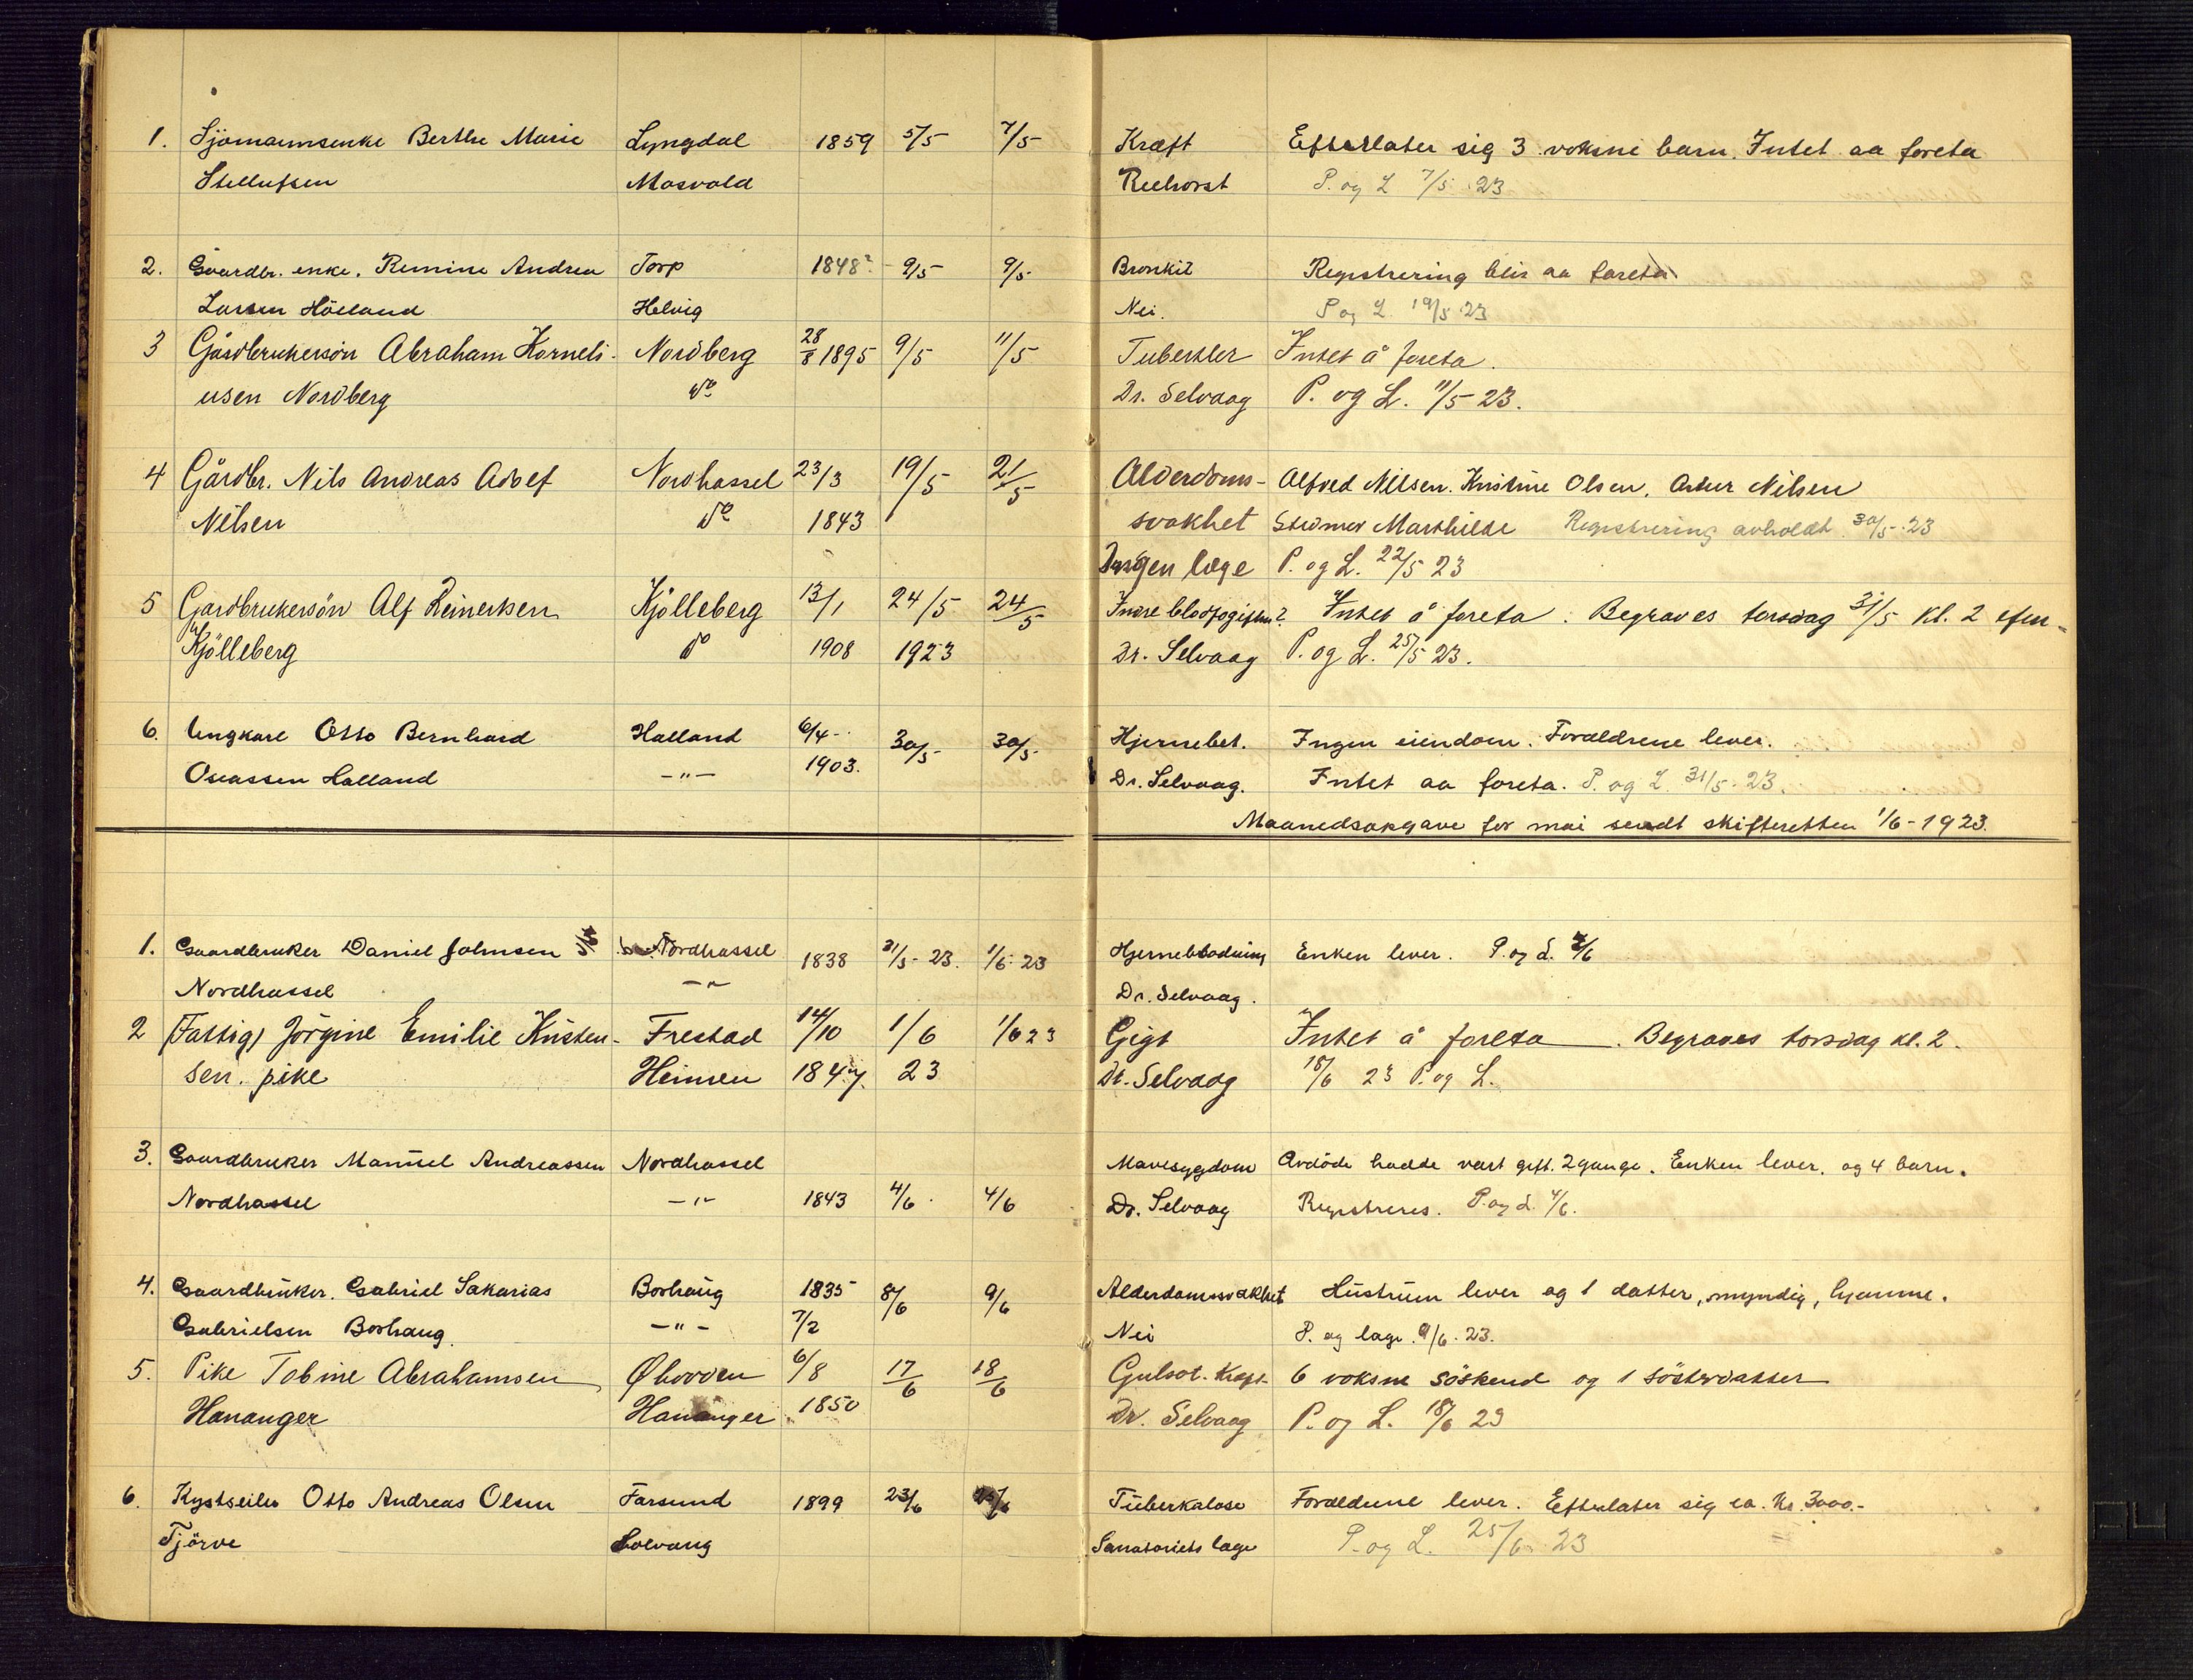 1. Sjömannsenke Berthe Marie Lyngdal 1859 5/5 7/5 Kræft Efterlater sig 3 voksne barn. Intet aa foreta
Stellufsen Mosvold Reehorst P. og L 7/5 23
2. Gaardbr. enke. Remine Andrea Torp 1848? 9/5 9/5 Bronkit Registrering blir aa foreta
Larsen Höiland Helvig Nei. P og L. 19/5 23
3 Gårdbrukersön Abraham Korneli- Nordberg 28/8 1895 9/5 11/5 Tuberkler Intet å foreta.
usen Nordberg do Dr. Selvaag P. og L. 11/5 23.
4 Gårdbr. Nils Andreas Adolf Nordhassel 23/3 19/5 21/5 Alderdoms- Alfred Nilsen. Kristine Olsen. Artur Nilsen
Nilsen do 1843 svakhet Marthilde Registrering avholdt 30/5 23
Ingen læge P. og L. 22/5 23
5 Gardbrukersön Alf Reinertsen Kjölleberg 13/1 24/5 24/5 Indre blodfogiftn? Intet å foreta : Begraves torsdag 31/5 kl. 2 efm-
Kjölleberg do 1908 1923 Dr. Selvaag P. og L. 25/5 23.
6. Ungkare Otto Bernhard Halland 6/4- 30/5 30/5 Hjernebet. Ingen eiendom. Foraldrene lever.
Oseassen Halland -"- 1903. Dr. Selvaag. Intet aa foreta. P. og L. 31/5. 23.
Maanedsopgave for mai sendt skifteretten 1/6-1923.
1. Gaardbruker Daniel Johnsen Nordhassel 1838 31/5-23. 1/6-23 Hjerneblodning Enken lever. P. og L.
Nordhassel -"- Dr. Selvaag.
2 (Fattig) Jörgine Emilie Kristen- Frestad 14/10 1/6 1/6 23 Gigt Intet å foreta. Begraves torsdag kl. 2.
sen. pike Heimen 1847. 23 Dr. Selvaag 18/6 23 P. og L.
3. Gaardbruker Manuel Andreassen Nordhassel Mavesygdom Avdöde hadde vært gift. 2 gange. Enken lever. og 4 barn.
Nordhassel -"- 1843 4/6. 4/6 Dr. Selvaag Registreres. P. og L. 4/6.
4. Gaardbruker. Gabriel Sakarias Borhaug 1835 8/6 9/6 Alderdomssvakhet Hustruen lever og 1 datter, myndig, hjemme.
Gabrielsen Borhaug. -"- 7/2 Nei P. og læge. 9/6. 23.
5. Pike Tobine Abrahamsen Ø hodden 6/8 17/6 18/6 Gulsot. Kræft- 6 voksne söskend og 1 sösterdatter
Hananger Hananger 1850 Dr. Selvaag P. og L. 18/6 23
6. Kystseiler Otto Andreas Olsen Farsund 1899 23/6 25/6 Tuberkalose Foraldrene lever. Efterlater sig ca. Kr. 3000.-
Tjörve Solvang Sanatoriets læge P. og L. 25/6 23